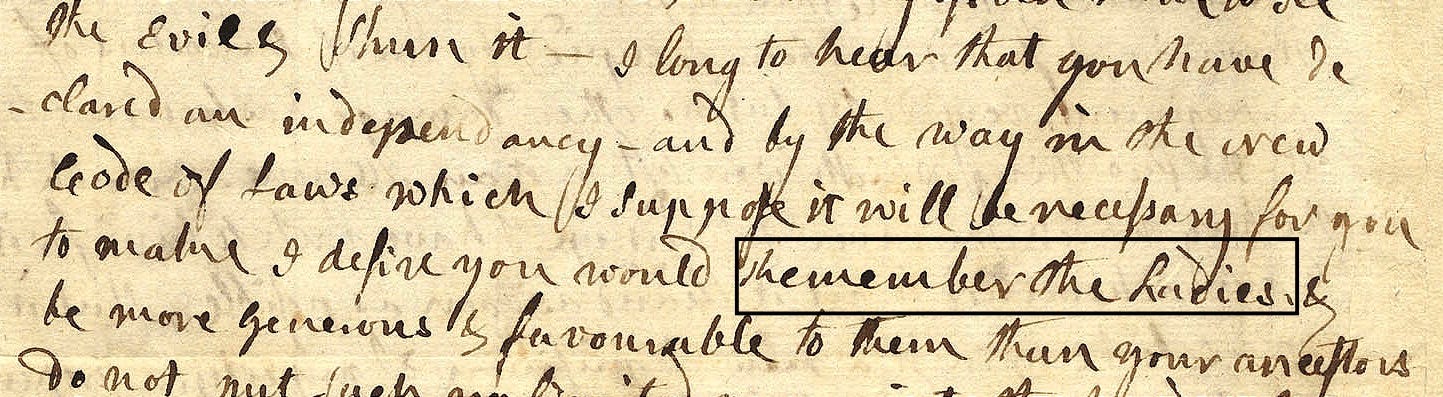 the Evil & shun it — I long to hear that you have de
-clared an independancy - and by the way in the new
Code of Laws which I suppose it will be necessary for you
to make I desire you would Remember the Ladies, &
be more generous & favourable to them than your ancestors
Do not put such